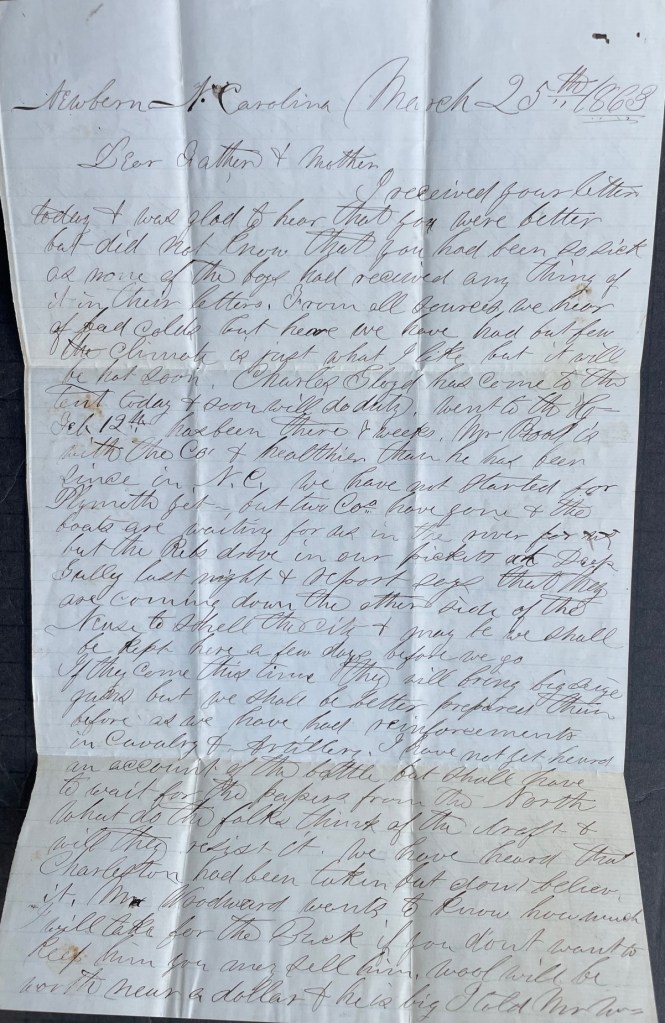 Newbern N. Carolina March 25th 1863
Dear Father & Mother
I received your letter
today & was glad to hear that you were better
but did not know that you had been so sick
as none of the boys had received any thing of
it in their letters. From all sources we hear
of bad colds but here we have had but few
the climate is just what I like but it will
be hot soon. Charles Floyd has come to the
tent today & soon will do duty. went to the Ho-
Feb 12th has been there weeks. Mr is
with the Co. & healthier than he has been
sinse in N.C. We have not started for
Plymoth yet but two Cos have gone & the
boats are waiting for us in the river
but the Rebs drove in our pickets at Deep
Gully last night & report says that they
are coming down the other side of the
Neuse to shell the city & may be we shall
be kept here a few days before we go
If they come this time they will bring big size
guns but we shall be better prepared then
before as we have had reinforcements
in Cavalry & Artillery. I have not yet heard
an account of the battle but shall have
to wait for the papers from the North
What do the folks think of the draft &
will they resist it. We have heard that
Charleston had been taken but dont believe
it. Mr Woodward wants to know how much
I will take for the Buck if you dont want to
keep him you may sell him. wool will be
worth near a dollar & he is big I told Mr Wo